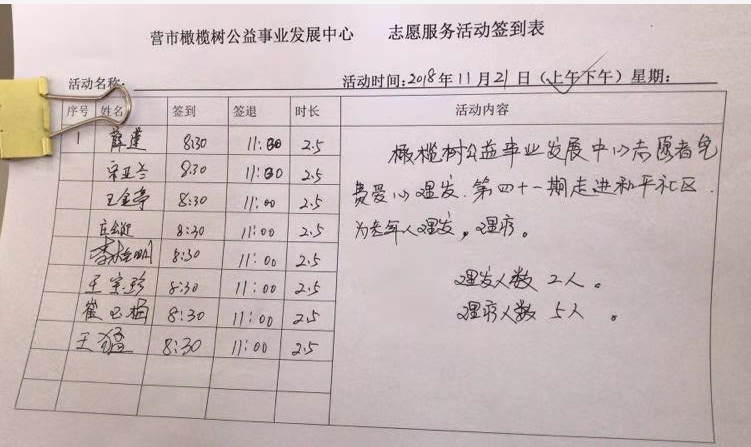 营市橄榄树公益事业发展中心 志愿服务活动签到表
活动名称: 活动时间:2018年11月21日（上午下午）星期:
序号 姓名 签到 签退 时长 活动内容
1 薛莲 8:30 11:00 2.5
宋亚兰 8:30 11:00 2.5
王金亭 8:30 11:00 2.5
8:30 11:00 2.5
8:30 11:00 2.5
王宝珍 8:30 11:00 2.5
崔 梅 8:30 11:00 2.5
王猛 8:30 11:00 2.5
橄榄树公益事业发展中心志愿者免
费爱心理发.第四十一期走进和平社区.
为老年人理发，理疗。
理发人数 2人。
理疗人数 5人。